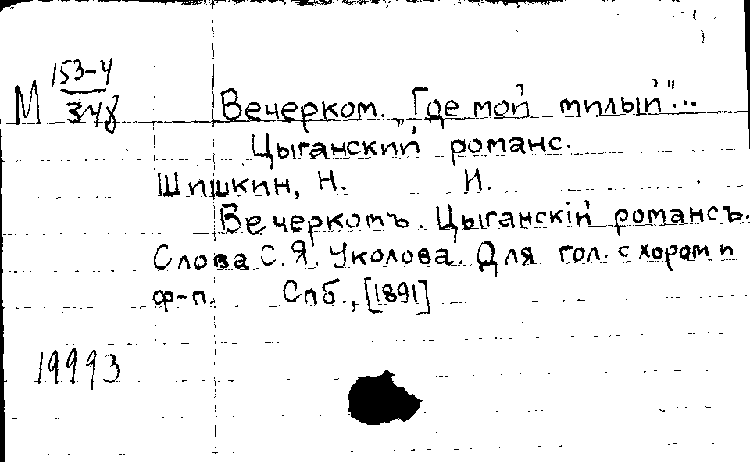 М 153-4/348
Вечерком. „Где мой милый"...
Цыганский романс.
Шишкин, Н. И.
Вечеркомъ. Цыганскій романсъ.
Слова С.Я. Уколова. Для гол. с хором и
ф-п. Спб., [1891]
19993